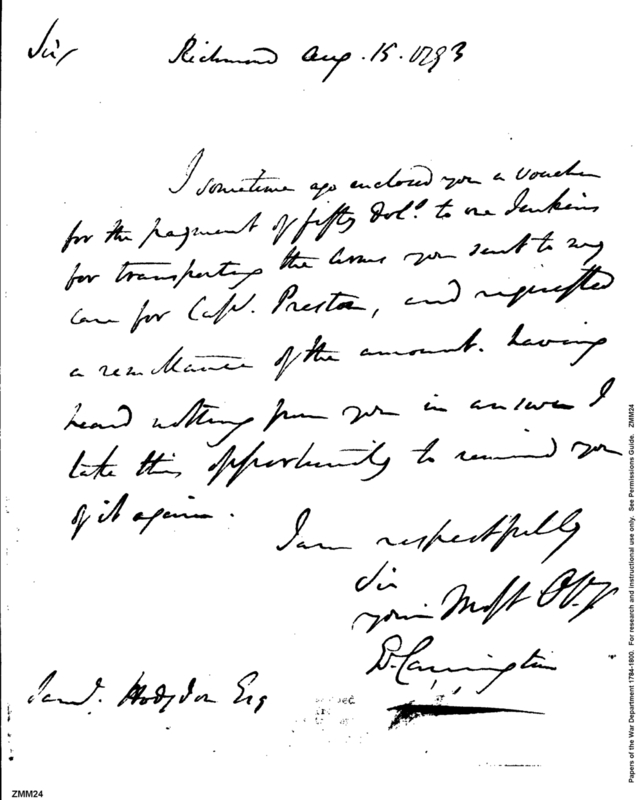 Sir
Richmond Aug. 15. 1793
I sometime ago enclosed you a voucher
for the payment of fifty Dols. to one Jenkins
for transporting the Arms you sent to my
care for Capt. Preston, and requested
a remittance of the amount. having
heard nothing from you in answer I
take this opportunity to remind you
of it again.
I am respectfully
Sir
your Most Obt
E. Carrington
Saml. Hodgdon Esq
ZMM24
Papers of the War Department 1784-1800. For research and instructional use only. See Permissions Guide. ZMM24